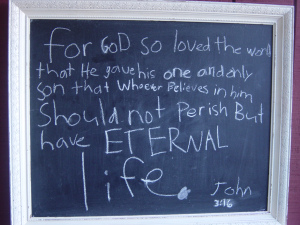 for GOD so loved the world
that He gave his one and only
son that whoever Believes in him
Should not Perish But
have ETERNAL
life.
John
3:16